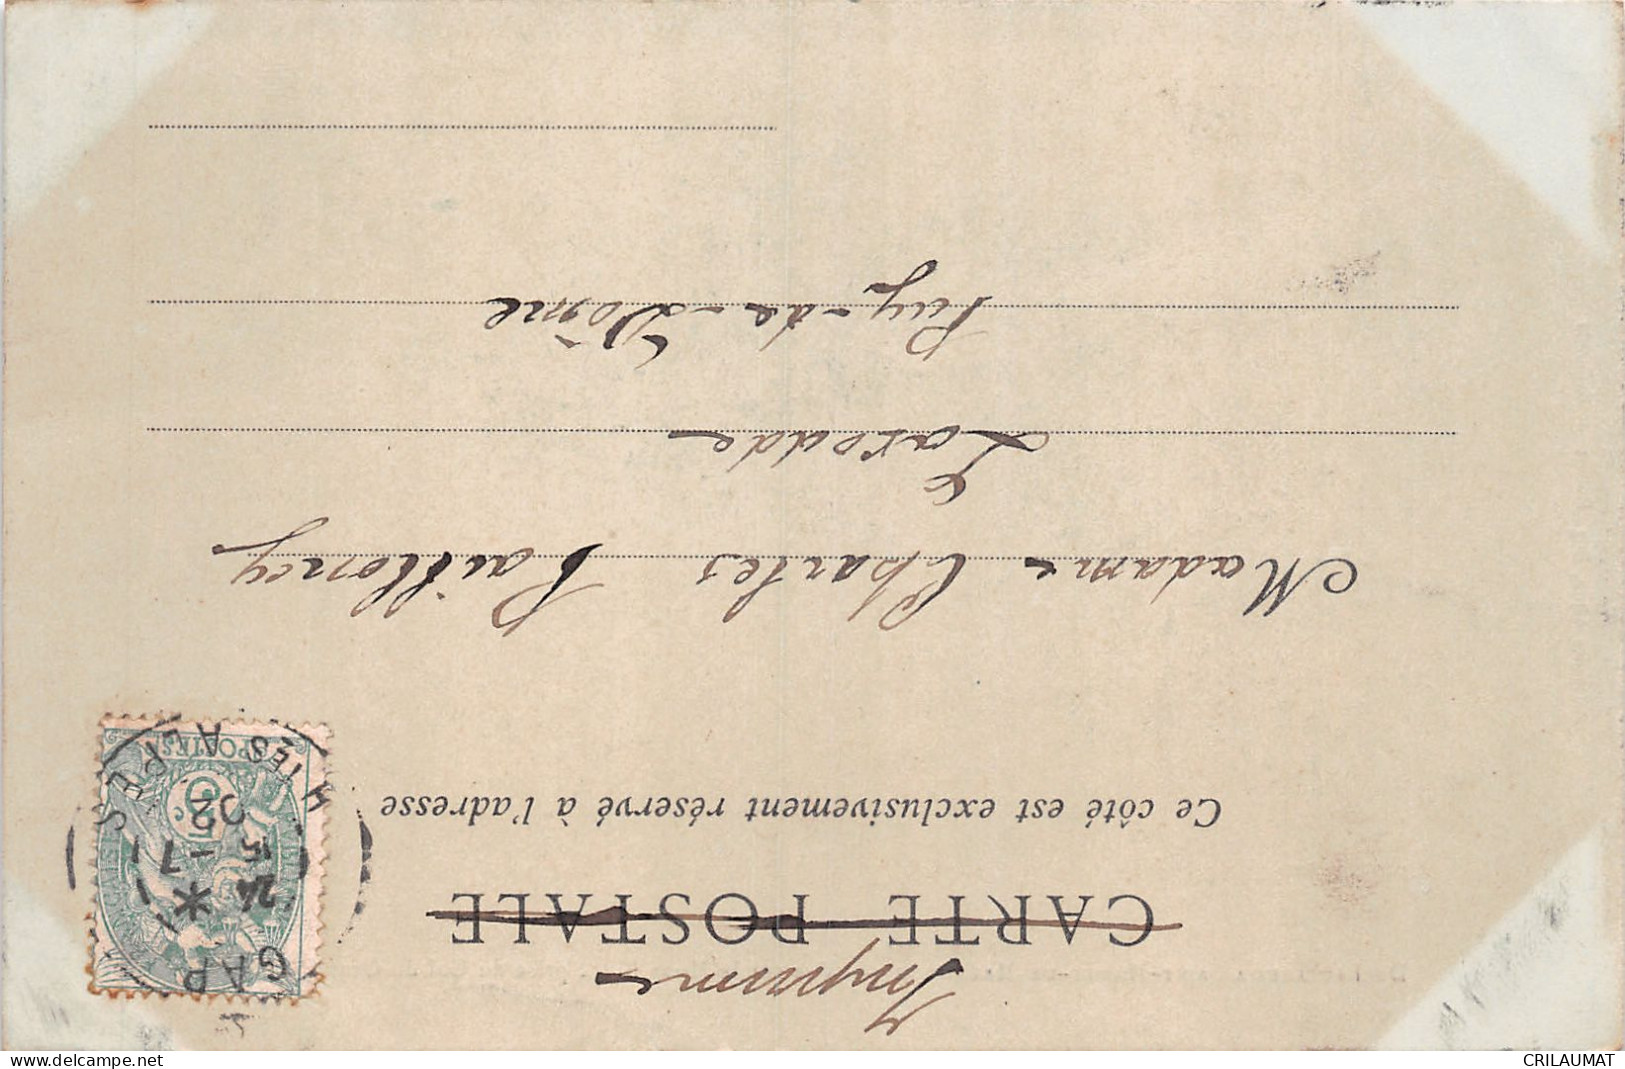 Imprimé
CARTE POSTALE
Ce côté est exclusivement réservé à l'adresse
GAP
24 *
15 -7
02
HTES ALPES
5c
POSTES
Madame Charles
Larodde
Puy-de-Dôme
www.delcampe.net
CRILAUMAT